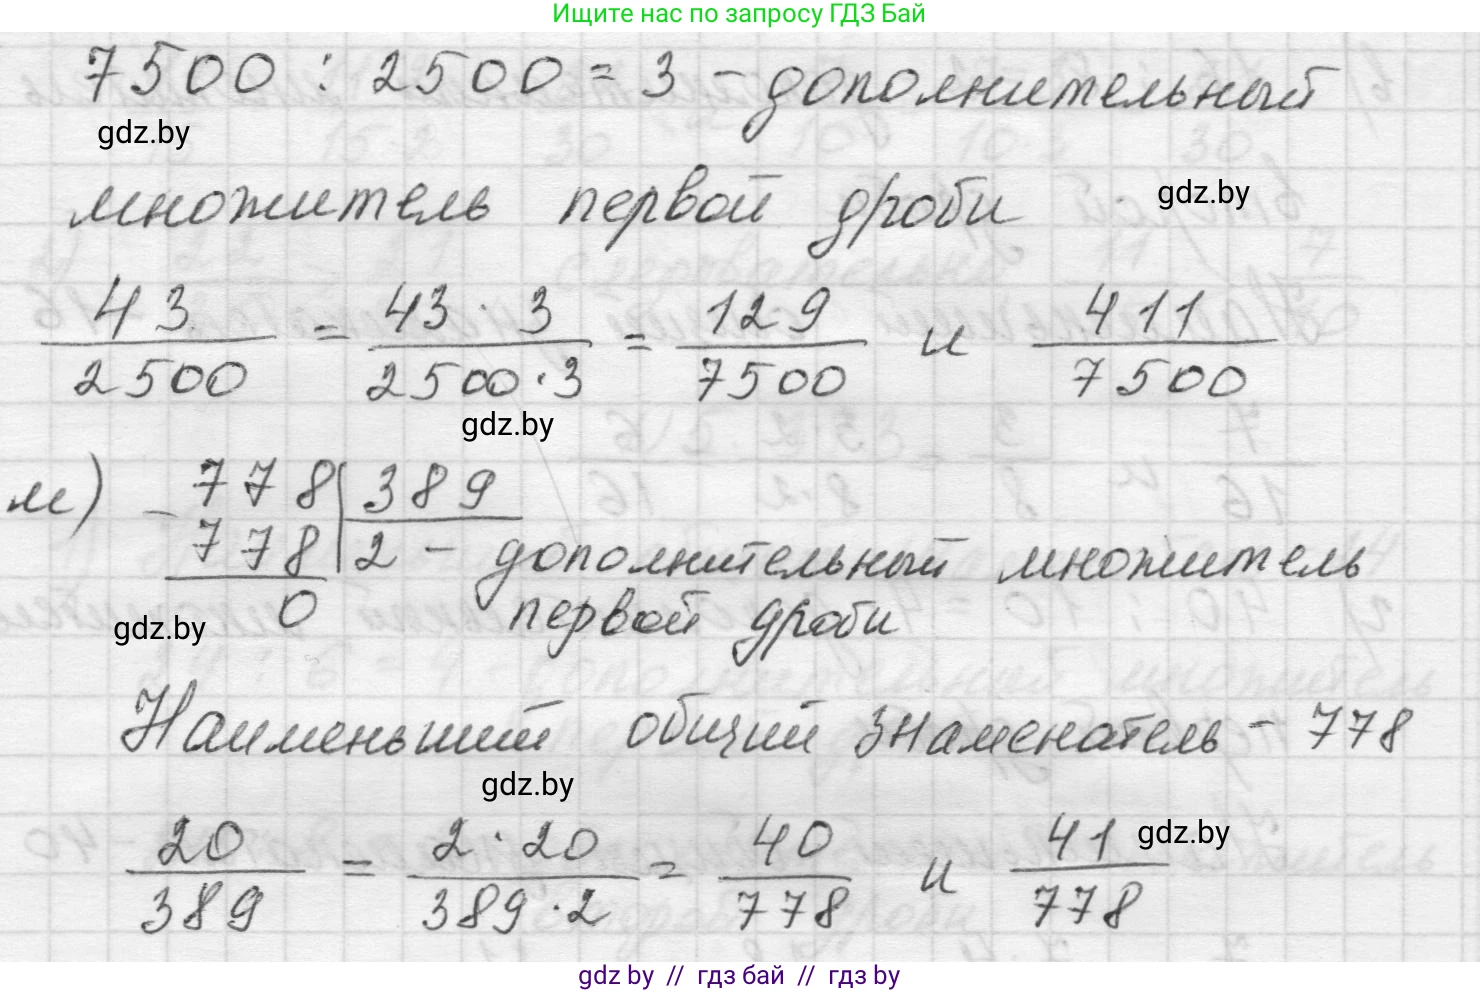 Ищите нас по запросу ГДЗ Бай
7500 : 2500 = 3 - дополнительный
gdz.by
множитель первой дроби
gdz.by
43/2500 = 43·3/2500·3 = 129/7500 и 411/7500
gdz.by
м) - 778 | 389
778 | 2 - дополнительный множитель
0 первой дроби
gdz.by
Наименьший общий знаменатель - 778
gdz.by
20/389 = 2·20/389·2 = 40/778 и 41/778
gdz.by
gdz by // гдз бай // гдз by